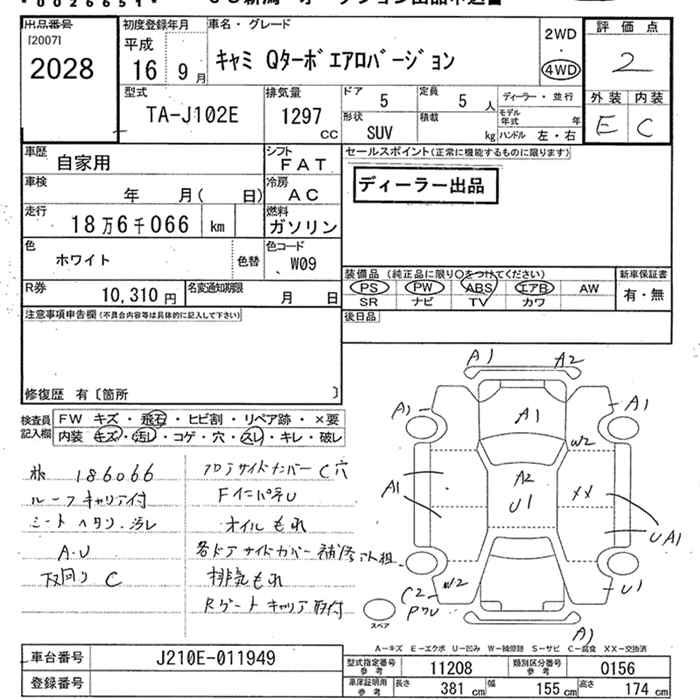 *0026651*
出品番号 初度登録年月 車名・グレード 2WD 評価点
[2007] 平成
2028 16 9月 キャミ Qターボエアロバージョン 4WD 2
型式 排気量 ドア 定員 ディーラー・並行 外装 内装
TA-J102E 1297 CC 5 5人 モデル年式 年 E C
形状 積載
SUV kg ハンドル 左・右
車歴 シフト セールスポイント(正常に機能するものに限ります)
自家用 FAT
車検 冷房 ディーラー出品
年 月( 日) AC
走行 燃料
18万6千066 km ガソリン
色 色コード
ホワイト 色替 W09
装備品(純正品に限り〇をつけてください) 新車保証書
R券 名変通知期限 PS PW ABS エアB AW 有・無
10,310円 月 日 SR ナビ TV カワ
注意事項申告欄(不具合内容等は具体的に記入して下さい) 後日品
修復歴 有〔箇所 〕
検査員記入欄 FW キズ・飛石・ヒビ割・リペア跡・×要
内装 キズ・汚れ・コゲ・穴・スレ・キレ・破レ
A1 A2
A1 A1 A1
W2
A2
A1 U1 XX
UA1
C2 W2 U1
A1
スペア
186066
ルーフキャリア付
シートヘタリ・汚レ
A.U
下回り C
フロアサイドメンバー C穴
FインパネU
オイルもれ
各ドアサイドカバー補修
排気もれ
Rゲートキャリア取付
A-キズ E-エクボ U-凹み W-補修跡 S-サビ C-腐食 XX-交換済
車台番号 J210E-011949 型式指定番号 参考 11208 類別区分番号 参考 0156
登録番号 車庫証明用 参考 長さ 381cm 幅 155cm 高さ 174cm